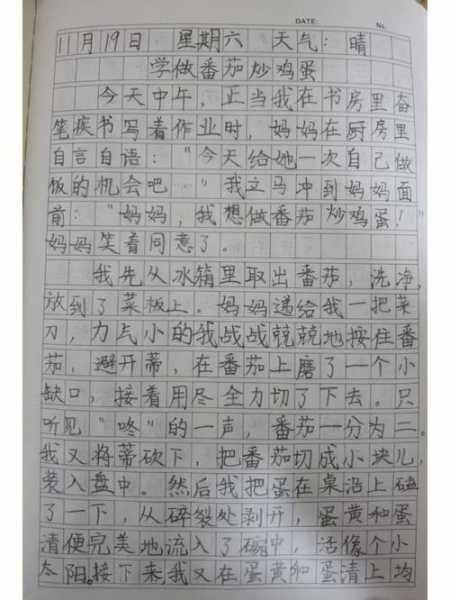 DATE: No.
11月19日 星期六 天气：晴
学做番茄炒鸡蛋
今天中午，正当我在书房里奋
笔疾书写着作业时，妈妈在厨房里
自言自语：“今天给她一次自己做
饭的机会吧”我立马冲到妈妈面
前：“妈妈，我想做番茄炒鸡蛋！”
妈妈笑着同意了。
我先从冰箱里取出番茄，洗净，
放到了菜板上。妈妈递给我一把菜
刀，力气小的我战战兢兢地按住番
茄，避开蒂，在番茄上磨了一个小
缺口，接着用尽全力切了下去。只
听见“咚”的一声，番茄一分为二。
我又将蒂砍下，把番茄切成小块儿，
装入盘中。然后我把蛋在桌沿上磕
了一下，从碎裂处剥开，蛋黄和蛋
清便完美地流入了碗中，活像个小
太阳。接下来我又在蛋黄和蛋清上均